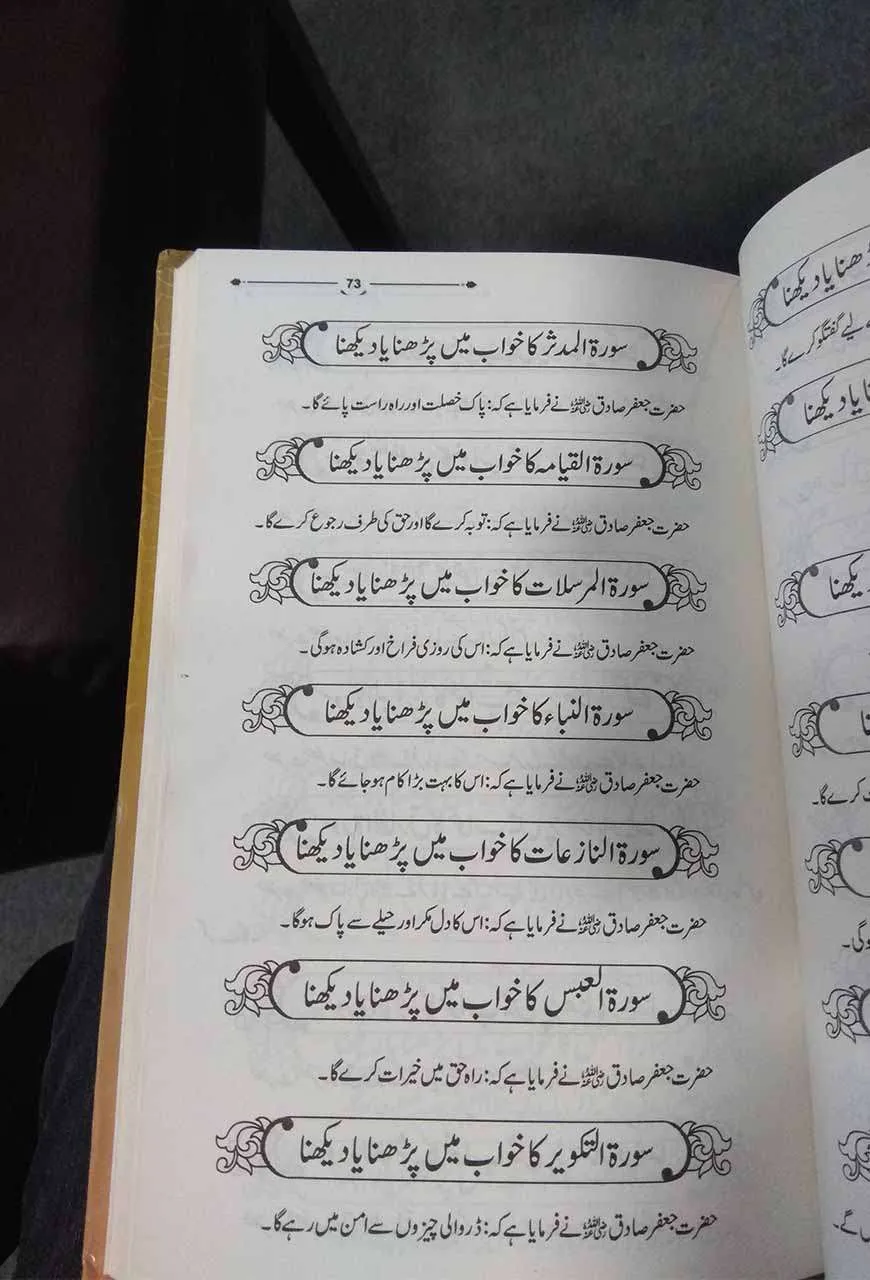 73
سورۃ المدثر کا خواب میں پڑھنا یا دیکھنا
حضرت جعفر صادق رضی اللہ عنہ نے فرمایا ہے کہ: پاک خصلت اور راہ راست پائے گا۔
سورۃ القیامہ کا خواب میں پڑھنا یا دیکھنا
حضرت جعفر صادق رضی اللہ عنہ نے فرمایا ہے کہ: توبہ کرے گا اور حق کی طرف رجوع کرے گا۔
سورۃ المرسلات کا خواب میں پڑھنا یا دیکھنا
حضرت جعفر صادق رضی اللہ عنہ نے فرمایا ہے کہ: اس کی روزی فراخ اور کشادہ ہوگی۔
سورۃ النباء کا خواب میں پڑھنا یا دیکھنا
حضرت جعفر صادق رضی اللہ عنہ نے فرمایا ہے کہ: اس کا بہت بڑا کام ہو جائے گا۔
سورۃ النازعات کا خواب میں پڑھنا یا دیکھنا
حضرت جعفر صادق رضی اللہ عنہ نے فرمایا ہے کہ: اس کا دل مکر اور حیلے سے پاک ہوگا۔
سورۃ العبس کا خواب میں پڑھنا یا دیکھنا
حضرت جعفر صادق رضی اللہ عنہ نے فرمایا ہے کہ: راہ حق میں خیرات کرے گا۔
سورۃ التکویر کا خواب میں پڑھنا یا دیکھنا
حضرت جعفر صادق رضی اللہ عنہ نے فرمایا ہے کہ: ڈر والی چیزوں سے امن میں رہے گا۔
یا دیکھنا
لیے گفتگو کرے گا۔
یا دیکھنا
دیکھنا
کرے گا۔
ہوگی۔
گے۔